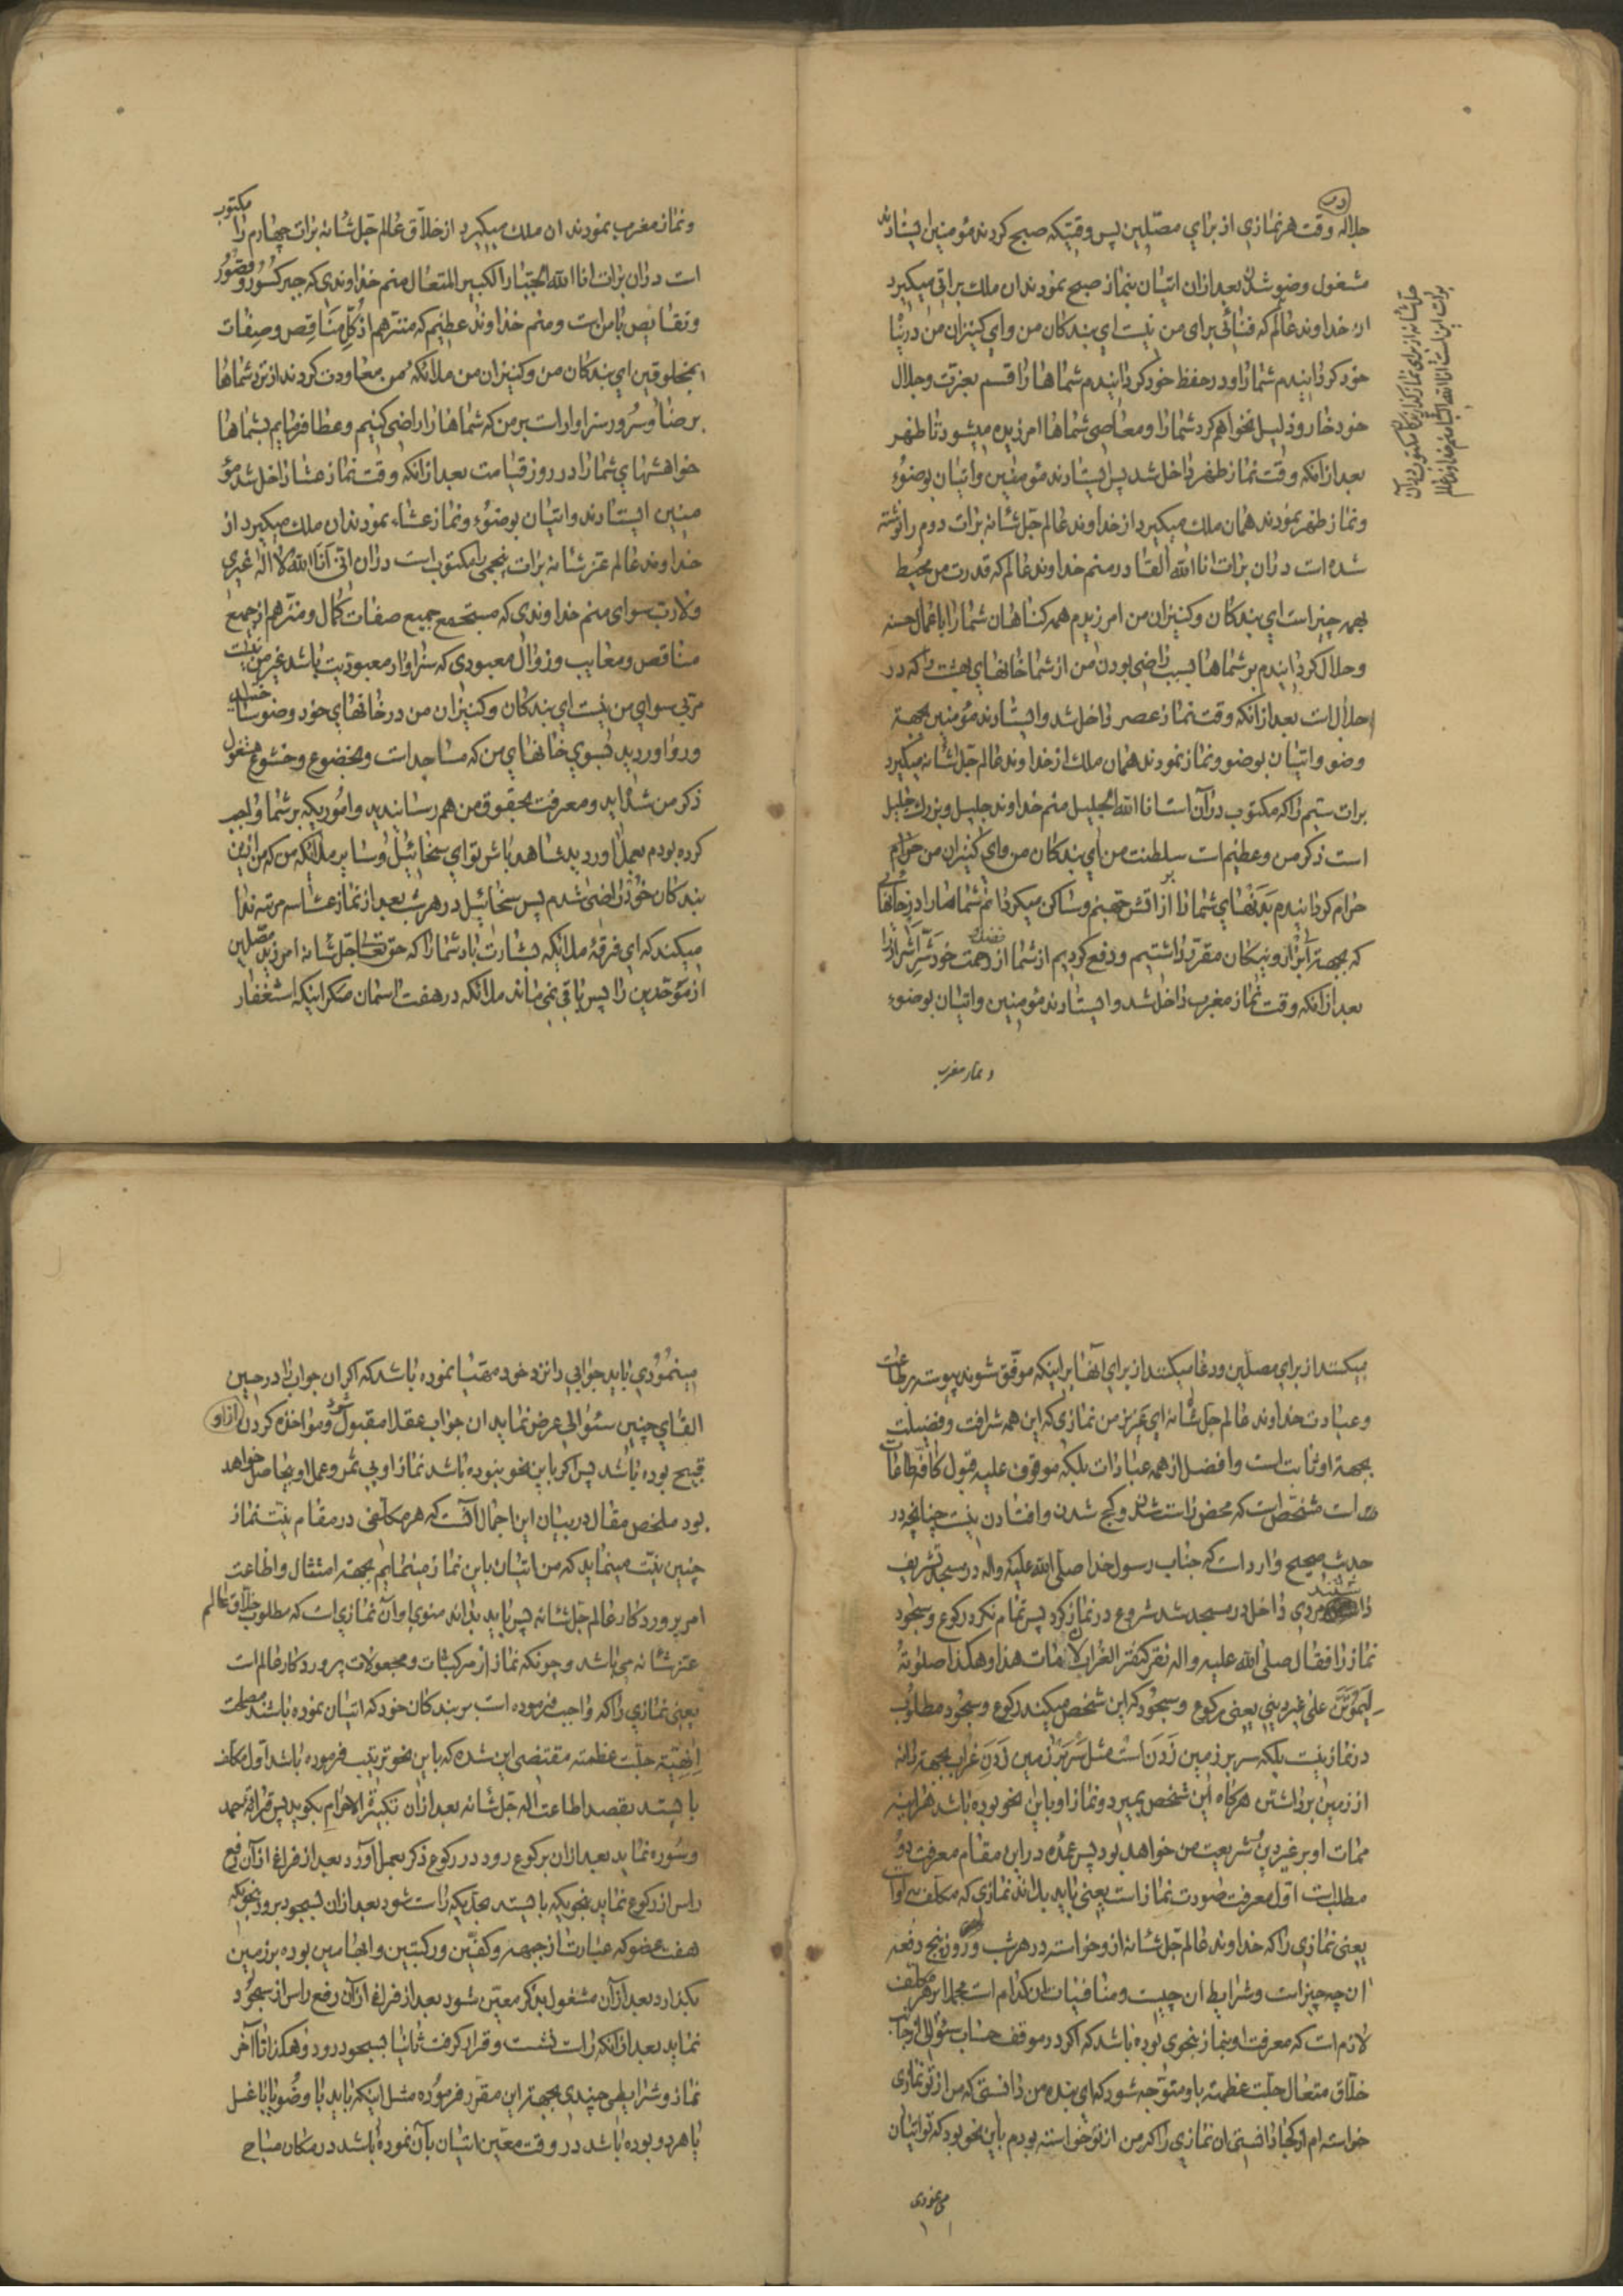 جلاله وقت هر نمازی از برای مصلّین پس وقتیکه صبح کردند مؤمنین ایستادند
مشغول وضو شدند بعد از ان اتیان بنماز صبح نمودند ان ملك براتی میگیرد
از خداوند عالم که فنائی برای من نیست ای بندکان من و ای کنیزان من در پناه
خود کردانیدم شما را و در حفظ خود کردانیدم شماها را قسم بعزت و جلال
خود خار و ذلیل نخواهم کرد شما را و معاصی شماها امرزیده میشود تا ظهر
بعد از انکه وقت نماز ظهر داخل شد پس ایستادند مؤمنین و اتیان بوضوء
و نماز ظهر نمودند همان ملك میگیرد از خداوند عالم جل شانه برات دوم را نوشته
شده است در ان برات انا الله القادر منم خداوند عالم که قدرت من محیط
بهمه چیز است ای بندکان و کنیزان من امرزیدم همه کناهان شما را با عمال حسنه
و حلال کردانیدم بر شماها بسبب راضی بودن من از شما خانهای بهشت را که در
جلال است بعد از انکه وقت نماز عصر داخل شد و ایستادند مؤمنین بجهة
وضو و اتیان بوضو و نماز نمودند همان ملك از خداوند عالم جل شانه میگیرد
برات سیم را که مکتوب در آن است انا الله الجلیل منم خداوند جلیل و بزرك جلیل
است ذکر من و عظیم است سلطنت من ای بندکان من و ای کنیزان من حرام
حرام کردانیدم بدنهای شما را بر آتش جهنم و ساکن میکردانم شماها را در خانهائی
که بجهة ابرار و نیکان مقرّر داشتیم و دفع کردیم از شما از رحمت خود شرّ اشرار را
بعد از انکه وقت نماز مغرب داخل شد و ایستادند مؤمنین و اتیان بوضوء
و نماز مغرب
جل شانه از برای نماز کذارندکان مکتوب در آن
برات این است انا الله الباقی منم خداوند عالم
و نماز مغرب نمودند ان ملك میگیرد از خلاّق عالم جل شانه برات چهارم را مکتوب
است در ان برات انا الله الجبار الکبیر المتعال منم خداوندی که جبر کسور و قصور
و نقایص با من است و منم خداوند عظیم که منزّهم از کلّ مناقص و صفات
مخلوقین ای بندکان من و کنیزان من ملائکهٔ من معاودت کردند از نزد شماها
برضا و سرور سزاوار است بر من که شماها را راضی کنیم و عطا فرمایم بشماها
خواهشهای شما را در روز قیامت بعد از انکه وقت نماز عشا داخل شد مؤ
منین ایستادند و اتیان بوضوء و نماز عشاء نمودند ان ملك میگیرد از
خداوند عالم عز شانه برات پنجمی را مکتوب است در ان انی انا الله لا اله غیری
و لا رب سوای منم خداوندی که مستجمع جمیع صفات کمال و منزّهم از جمیع
مناقص و معایب و زوال معبودی که سزاوار معبودیت باشد غیر من نیست
مربّی سوای من نیست ای بندکان و کنیزان من در خانهای خود وضو ساختید
و رو اوردید بسوی خانهای من که مساجد است و بخضوع و خشوع مشغول
ذکر من شده‌اید و معرفت بحقوق من هم رسانیدید و اموریکه بر شما واجب
کرده بودم بعمل اوردید شاهد باش تو ای سخائیل و سایر ملائکه من که من از این
بندکان خود راضی شدم پس سخائیل در هر شب بعد از نماز عشا سه مرتبه ندا
میکند که ای فرقهٔ ملائکه بشارت باد شما را که حق تعالی جل شانه امرزید مصلّین
از موحدین را پس باقی نمی‌ماند ملائکه در هفت اسمان مکر اینکه استغفار
میکنند از برای مصلین و دعا میکنند از برای آنها بر اینکه موفّق شوند پیوسته بر طاعات
و عبادت خداوند عالم جل شانه ای عزیز من نمازی که این همه شرافت و فضیلت
بجهة او ثابت است و افضل از همه عبادات بلکه موقوف علیه قبول کافّه طاعات
است مشخّص است که محض راست شدن و کج شدن و افتادن نیست چنانچه در
حدیث صحیح وارد است که جناب رسول خدا صلی الله علیه و اله در مسجد تشریف
داشتند مردی داخل در مسجد شد شروع در نماز کرد پس تمام نکرد رکوع و سجود
نماز را فقال صلی الله علیه و اله نقر کنقر الغراب لان مات هذا و هکذا صلوته
لیموتنّ علی غیر دینی یعنی رکوع و سجود که این شخص میکند رکوع و سجود مطلوب
در نماز نیست بلکه سر بر زمین زدن است مثل سر بر زمین زدن غراب بجهة دانه
از زمین برداشتن هرکاه این شخص بمیرد و نماز او باین نحو بوده باشد هر اینه
ممات او بر غیر دین و شریعت من خواهد بود پس عمده در این مقام معرفت دو
مطلب است اول معرفت صورت نماز است یعنی باید بداند نمازی که مکلف به است
یعنی نمازی را که خداوند عالم جل شانه از او خواسته در هر شب و روز پنج دفعه
ان چه چیز است و شرایط ان چیست و منافیات ان کدام است مجملا بر هر مکلف
لازم است که معرفت او بنماز بنحوی بوده باشد که اکر در موقف حساب سئوالی از جانب
خلاّق متعال جلت عظمته باو متوجه شود که ای بنده من دانستی که من از تو نمازی
خواسته‌ام از کجا دانستی ان نمازی را که من از تو خواسته بودم باین نحو بود که تو اتیان
می نمودی
مینمودی باید جوابی را نزد خود مهیّا نموده باشد که اکر ان جواب را در حین
القای چنین سئوالی عرض نماید ان جواب عقلا مقبول شود و مواخذه کردن از او
قبیح بوده باشد پس اکر باین نحو بنوده باشد نماز او بی ثمر و عمل او بیحاصل خواهد
بود ملخص مقال در بیان این اجمال آنست که هر مکلّفی در مقام نیّت نماز
چنین نیّت مینماید که من اتیان باین نماز مینمایم بجهة امتثال و اطاعت
امر پروردکار عالم جل شانه پس باید بداند منوی او آن نمازی است که مطلوب خلاق عالم
عز شانه می باشد و چونکه نماز از مرکبات و مجعولات پروردکار عالم است
یعنی نمازی را که واجب فرموده است بر بندکان خود که اتیان نموده باشند مصلحت
الهیّه جلّت عظمته مقتضی این شده که باین نحو ترتیب فرموده باشد اول مکلف
بایستد بقصد اطاعت اله جل شانه بعد از ان تکبیرة الاحرام بکوید پس قرائة حمد
و سوره نماید بعد از ان برکوع رود در رکوع ذکر بعمل آورد بعد از فراغ از آن رفع
راس از رکوع نماید بنحویکه بایستد بحدّیکه راست شود بعد از ان بسجود برود بنحویکه
هفت عضو که عبارت از جبهه و کفّین و رکبتین و ابهامین بوده بر زمین
بکذارد بعد از آن مشغول بذکر معیّن شود بعد از فراغ از آن رفع راس از سجود
نماید بعد از انکه راست نشست و قرار کرفت ثانیا بسجود رود و هکذا تا آخر
نماز و شرایطی چندی بجهة این مقرّر فرموده مثل اینکه باید با وضو یا با غسل
یا هر دو بوده باشد در وقت معیّن اتیان بآن نموده باشد در مکان مباح